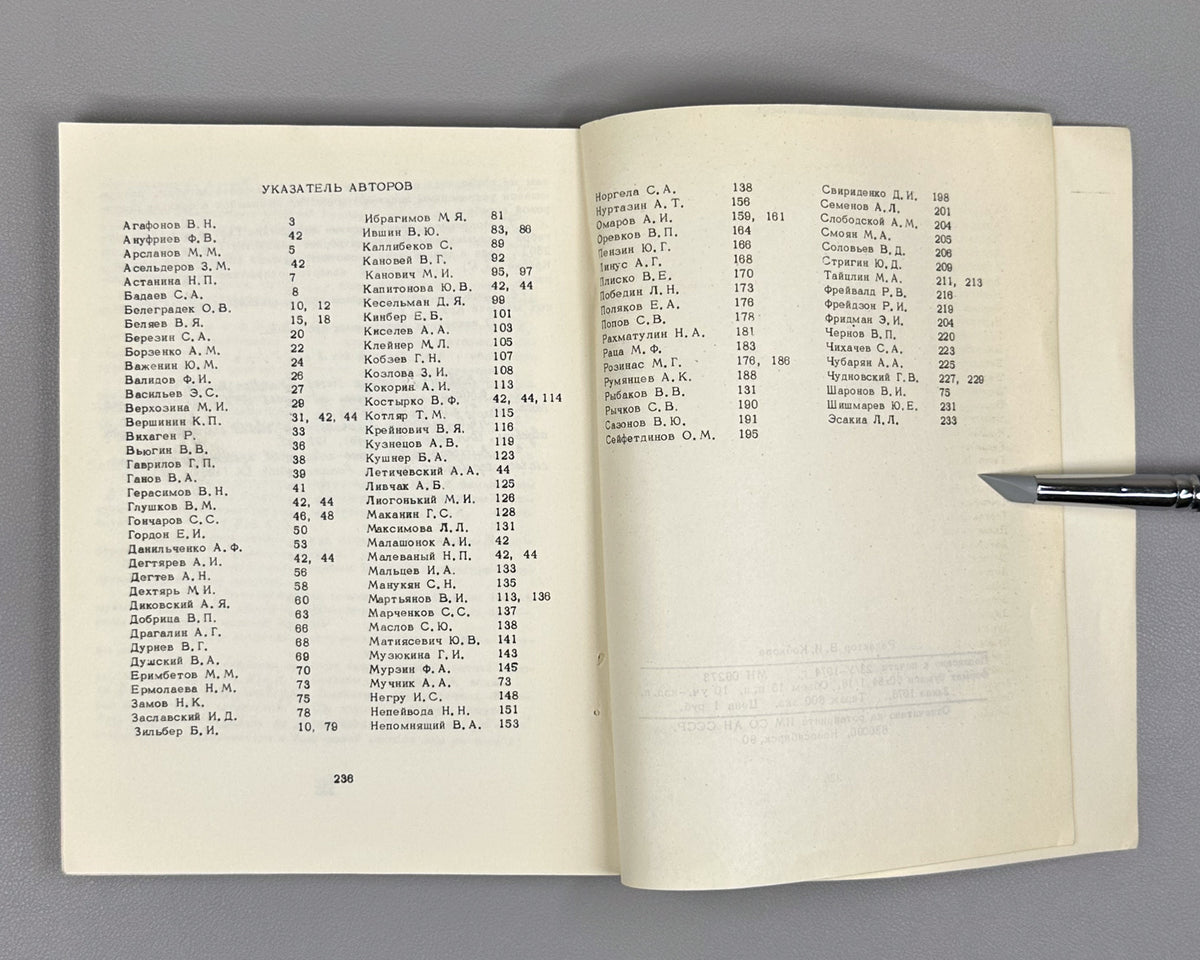 УКАЗАТЕЛЬ АВТОРОВ
Агафонов В. Н. 3
Ануфриев Ф. В. 42
Арсланов М. М. 5
Асельдеров З. М. 42
Астанина Н. П. 7
Бадаев С. А. 8
Белеградек О. В. 10, 12
Беляев В. Я. 15, 18
Березин С. А. 20
Борзенко А. М. 22
Важенин Ю. М. 24
Валидов Ф. И. 26
Васильев Э. С. 27
Верхозина М. И. 29
Вершинин К. П. 31, 42, 44
Вихаген Р. 33
Вьюгин В. В. 36
Гаврилов Г. П. 38
Ганов В. А. 39
Герасимов В. Н. 41
Глушков В. М. 42, 44
Гончаров С. С. 46, 48
Гордон Е. И. 50
Данильченко А. Ф. 53
Дегтярев А. И. 42, 44
Дегтев А. Н. 56
Дехтярь М. И. 58
Диковский А. Я. 60
Добрица В. П. 63
Драгалин А. Г. 66
Дурнев В. Г. 68
Душский В. А. 69
Еримбетов М. М. 70
Ермолаева Н. М. 73
Замов Н. К. 75
Заславский И. Д. 78
Зильбер Б. И. 10, 79
Ибрагимов М. Я. 81
Ившин В. Ю. 83, 86
Каллибеков С. 89
Кановей В. Г. 92
Канович М. И. 95, 97
Капитонова Ю. В. 42, 44
Кесельман Д. Я. 99
Кинбер Е. Б. 101
Киселев А. А. 103
Клейнер М. Л. 105
Кобзев Г. Н. 107
Козлова З. И. 108
Кокорин А. И. 113
Костырко В. Ф. 42, 44, 114
Котляр Т. М. 115
Крейнович В. Я. 116
Кузнецов А. В. 119
Кушнер Б. А. 123
Летичевский А. А. 44
Ливчак А. Б. 125
Лиогонький М. И. 126
Маканин Г. С. 128
Максимова Л. Л. 131
Малашонок А. И. 42
Малеваный Н. П. 42, 44
Мальцев И. А. 133
Манукян С. Н. 135
Мартьянов В. И. 113, 136
Марченков С. С. 137
Маслов С. Ю. 138
Матиясевич Ю. В. 141
Музюкина Г. И. 143
Мурзин Ф. А. 145
Мучник А. А. 73
Негру И. С. 148
Непейвода Н. Н. 151
Непомнящий В. А. 153
236
Норгела С. А. 138
Нуртазин А. Т. 156
Омаров А. И. 159, 161
Оревков В. П. 164
Пензин Ю. Г. 166
Пинус А. Г. 168
Плиско В. Е. 170
Победин Л. Н. 173
Поляков Е. А. 176
Попов С. В. 178
Рахматулин Н. А. 181
Раца М. Ф. 183
Розинас М. Г. 176, 186
Румянцев А. К. 188
Рыбаков В. В. 131
Рычков С. В. 190
Сазонов В. Ю. 191
Сейфетдинов О. М. 195
Свириденко Д. И. 198
Семенов А. Л. 201
Слободской А. М. 204
Смоян М. А. 205
Соловьев В. Д. 206
Стригин Ю. Д. 209
Тайцлин М. А. 211, 213
Фрейвалд Р. В. 216
Фрейдзон Р. И. 219
Фридман Э. И. 204
Чернов В. П. 220
Чихачев С. А. 223
Чубарян А. А. 225
Чудновский Г. В. 227, 229
Шаронов В. И. 75
Шишмарев Ю. Е. 231
Эсакиа Л. Л. 233